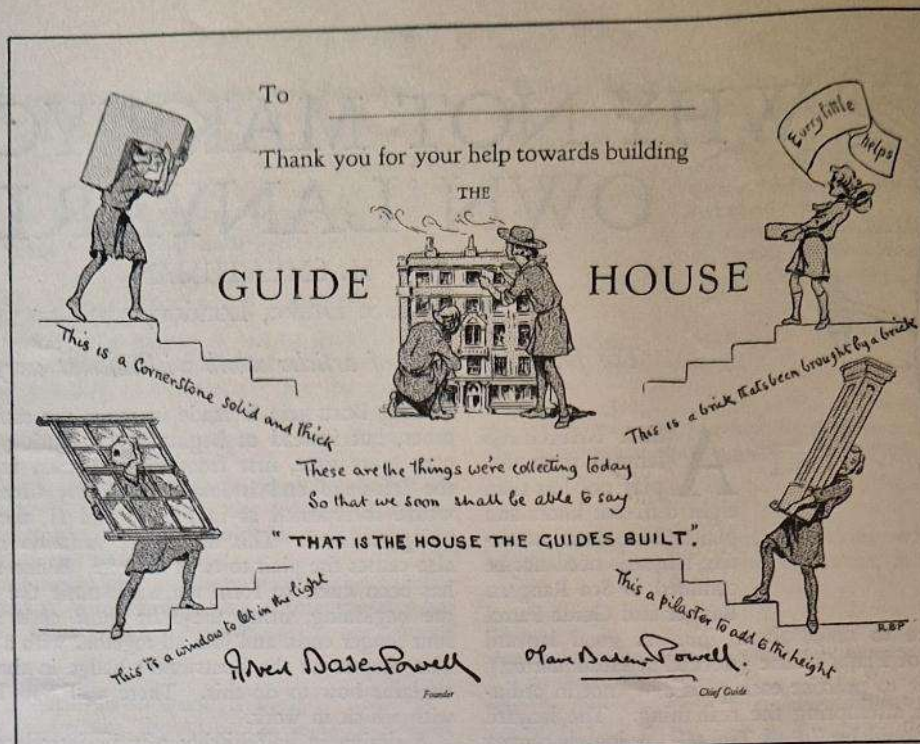 To
Every little
helps
Thank you for your help towards building
THE
GUIDE HOUSE
This is a Cornerstone solid and thick
This is a brick, thats been brought by a brick
These are the things we're collecting today
So that we soon shall be able to say
"THAT IS THE HOUSE THE GUIDES BUILT."
This is a window to let in the light
This a pilaster to add to the height
R B P
Robert Baden Powell
Olave Baden-Powell.
Founder
Chief Guide